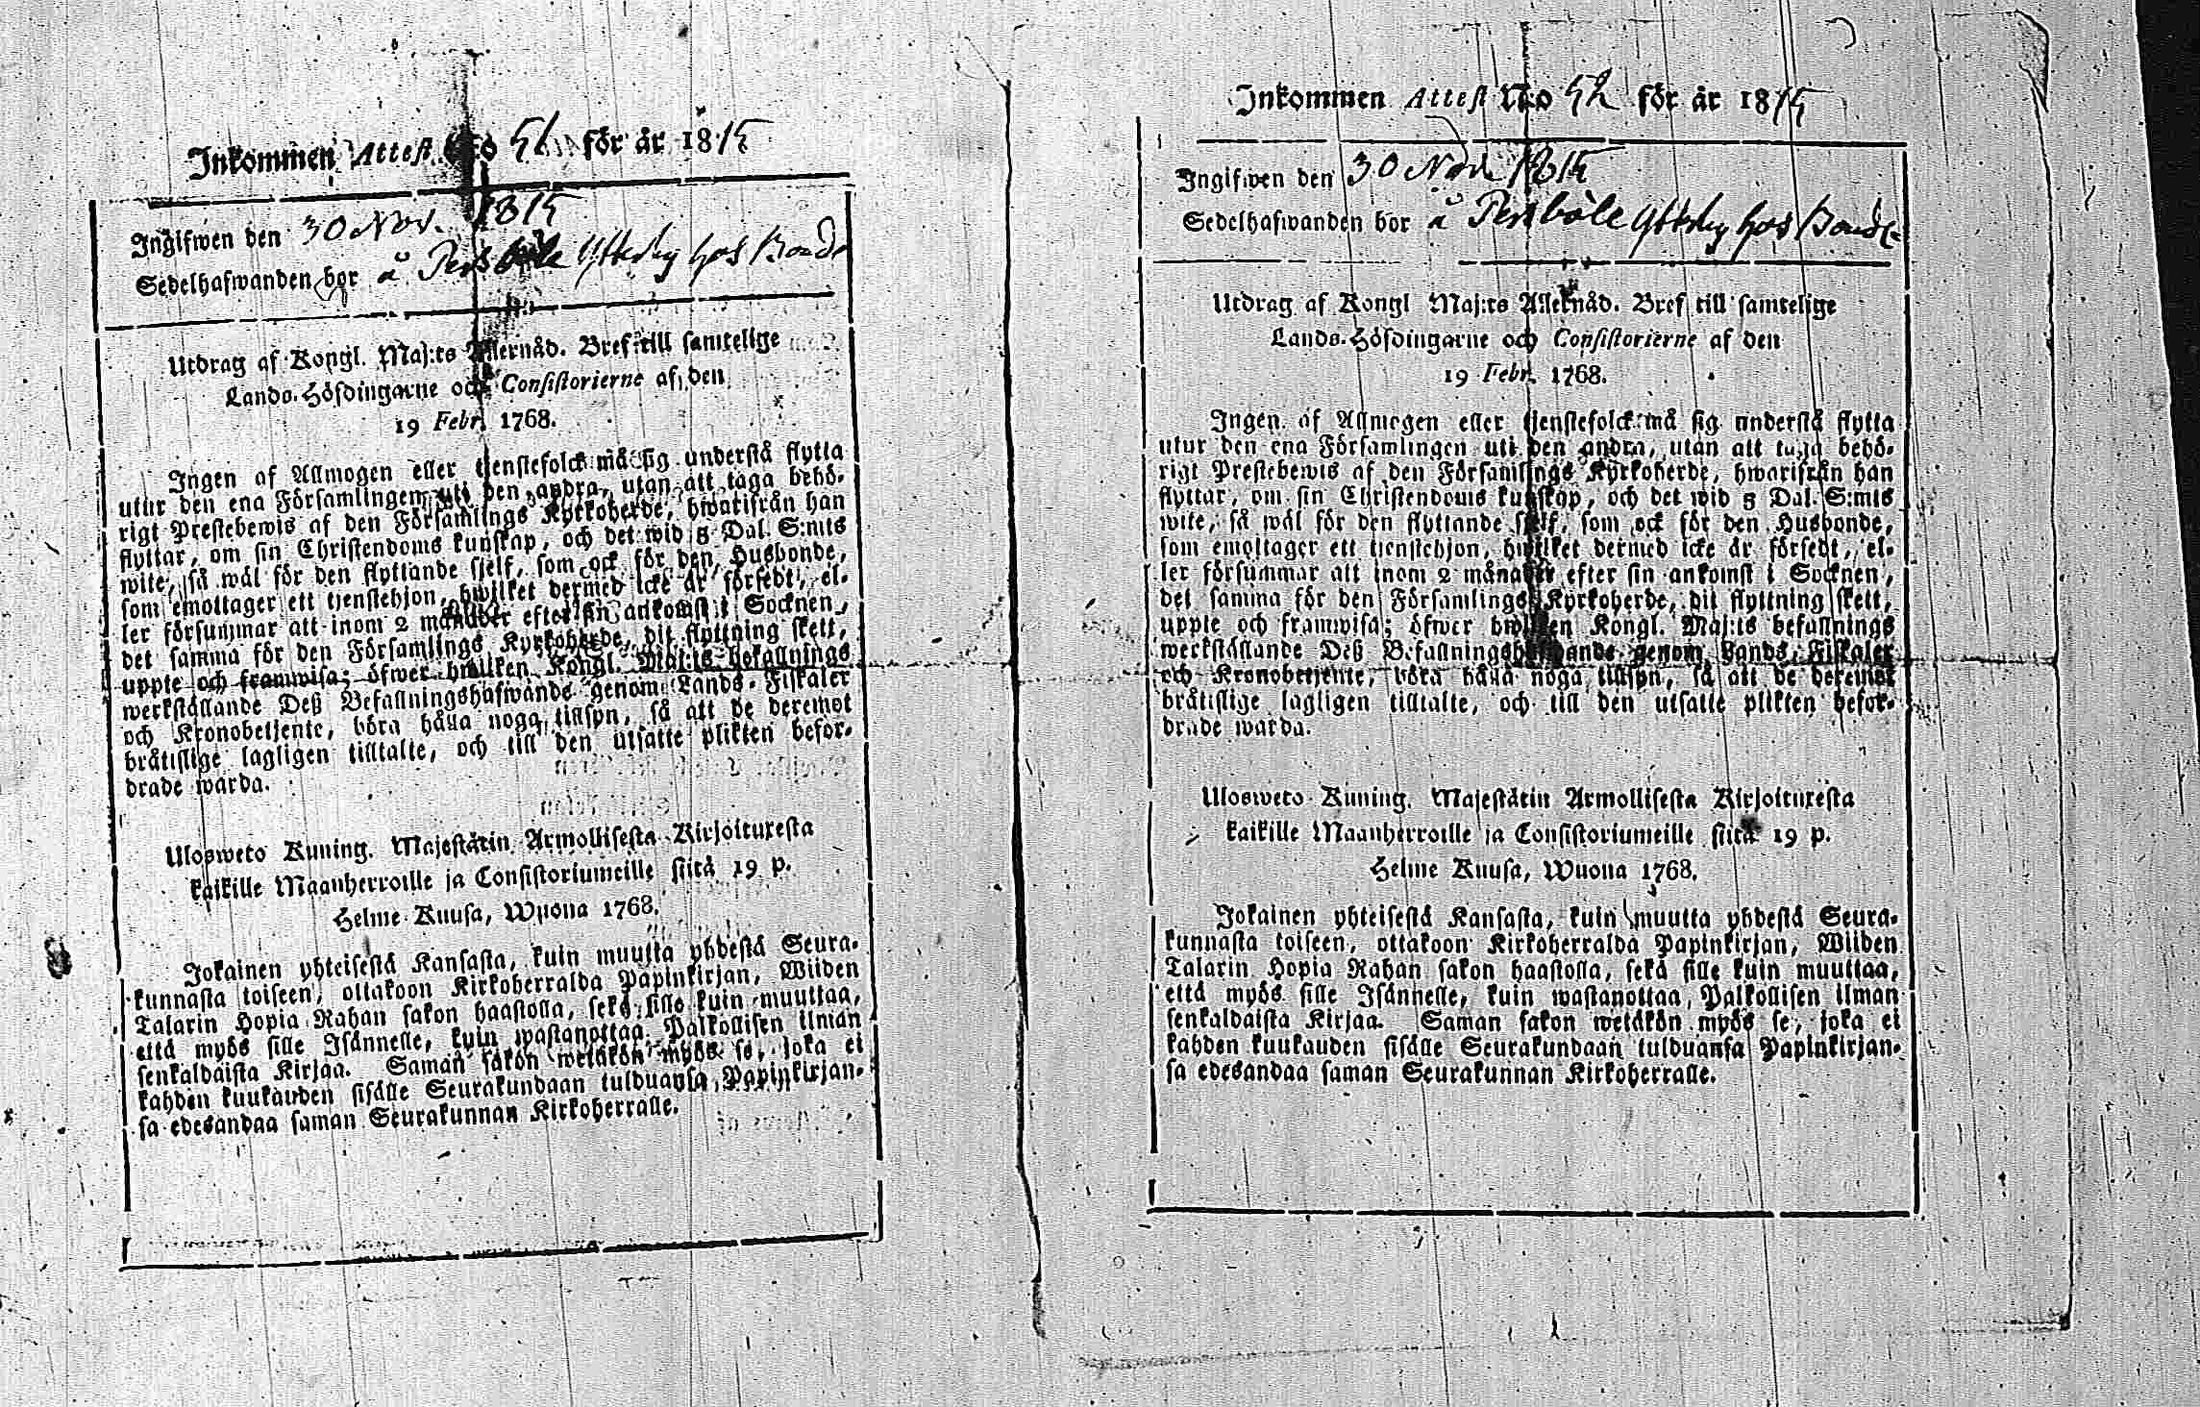 Inkommen Attest No 51 för år 1815
Ingifwen den 30 Nov. 1815
Sedelhafwanden bor å Persböle Ytterby hos Bonde
Utdrag af Kongl. Maj:ts Allernåd. Bref till samtelige
Lands-Höfdingarne och Consistorierne af den
19 Febr. 1768.
Ingen af Allmogen eller tjenstefolck må sig understå flytta
utur den ena Församlingen uti den andra, utan att taga behö-
rigt Prestebewis af den Församlings Kyrkoherde, hwarifrån han
flyttar, om sin Christendoms kunskap, och det wid 5 Dal. S:mts
wite, så wäl för den flyttande sjelf, som ock för den Husbonde,
som emottager ett tjenstehjon, hwilket dermed icke är försedt, el-
ler försummar att inom 2 månader efter sin ankomst i Socknen,
det samma för den Församlings Kyrkoherde, dit flyttning skett,
uppte och framwisa; öfwer hwilken Kongl. Maj:ts befallnings
werkställande Deß Befallningshafwande genom Lands-Fiskaler
och Kronobetjente, böra hålla noga tillsyn, så att de deremot
bråtislige lagligen tilltalte, och till den utsatte plikten befor-
drade warda.
Ulosweto Kuning. Majestätin Armollisesta Kirjoituxesta
kaikille Maanherroille ja Consistoriumeille siitä 19 p.
Helme Kuusa, Wuona 1768.
Jokainen yhteisestä Kansasta, kuin muutta yhdestä Seura-
kunnasta toiseen, ottakoon Kirkoherralda Papinkirjan, Wiiden
Talarin Hopia Rahan sakon haastolla, sekä sille kuin muuttaa,
että myös sille Isännelle, kuin wastanottaa Palkollisen ilman
senkaldaista Kirjaa. Saman sakon wetäkön myös se, joka ei
kahden kuukauden sisälle Seurakundaan tulduansa Papinkirjan-
sa edesandaa saman Seurakunnan Kirkoherralle.
Inkommen Attest No 52 för år 1815
Ingifwen den 30 Nov. 1815
Sedelhafwanden bor å Persböle Ytterby hos Bonde
Utdrag af Kongl Maj:ts Allernåd. Bref till samtelige
Lands-Höfdingarne och Consistorierne af den
19 Febr. 1768.
Ingen af Allmogen eller tjenstefolck må sig understå flytta
utur den ena Församlingen uti den andra, utan att taga behö-
rigt Prestebewis af den Församlings Kyrkoherde, hwarifrån han
flyttar, om sin Christendoms kunskap, och det wid 5 Dal. S:mts
wite, så wäl för den flyttande sjelf, som ock för den Husbonde,
som emottager ett tjenstehjon, hwilket dermed icke är försedt, el-
ler försummar att inom 2 månader efter sin ankomst i Socknen,
det samma för den Församlings Kyrkoherde, dit flyttning skett,
uppte och framwisa; öfwer hwilken Kongl. Maj:ts befallnings
werkställande Deß Befallningshafwande genom Lands-Fiskaler
och Kronobetjente, böra hålla noga tillsyn, så att de deremot
bråtislige lagligen tilltalte, och till den utsatte plikten befor-
drade warda.
Ulosweto Kuning. Majestätin Armollisesta Kirjoituxesta
kaikille Maanherroille ja Consistoriumeille siitä 19 p.
Helme Kuusa, Wuona 1768.
Jokainen yhteisestä Kansasta, kuin muutta yhdestä Seura-
kunnasta toiseen, ottakoon Kirkoherralda Papinkirjan, Wiiden
Talarin Hopia Rahan sakon haastolla, sekä sille kuin muuttaa,
että myös sille Isännelle, kuin wastanottaa, Palkollisen ilman
senkaldaista Kirjaa. Saman sakon wetäkön myös se, joka ei
kahden kuukauden sisälle Seurakundaan tulduansa Papinkirjan-
sa edesandaa saman Seurakunnan Kirkoherralle.